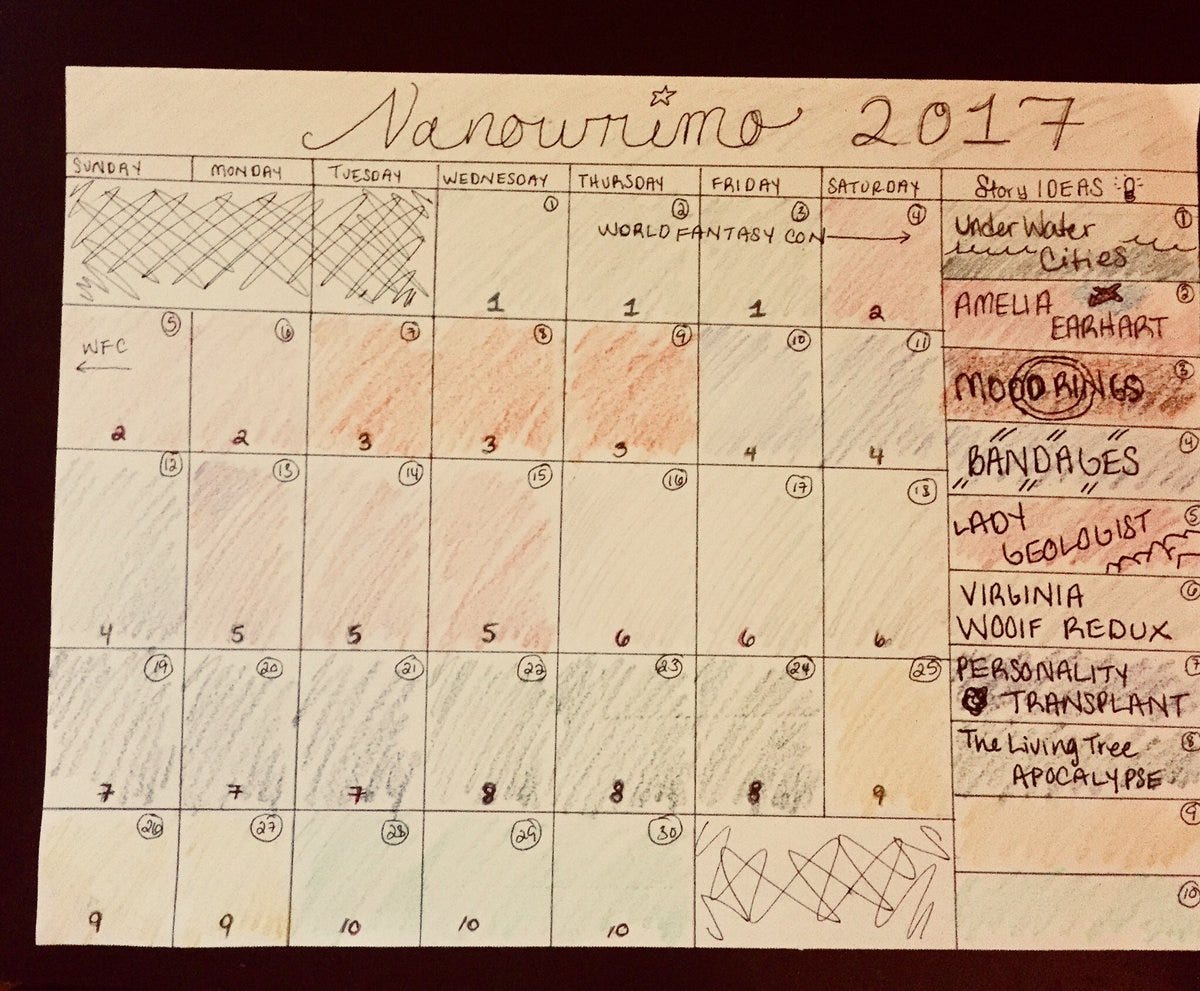 Nanowrimo 2017
SUNDAY MONDAY TUESDAY WEDNESDAY THURSDAY FRIDAY SATURDAY Story IDEAS
1 2 3 4
WORLD FANTASY CON
1 1 1 2
5 6 7 8 9 10 11
WFC
2 2 3 3 3 4 4
12 13 14 15 16 17 18
4 5 5 5 6 6 6
19 20 21 22 23 24 25
7 7 7 8 8 8 9
26 27 28 29 30
9 9 10 10 10
1
Under Water
Cities
2
AMELIA
EARHART
3
MOOD RINGS
4
BANDAGES
5
LADY
GEOLOGIST
6
VIRGINIA
WOOlF REDUX
7
PERSONALITY
TRANSPLANT
8
The Living Tree
APOCALYPSE
9
10